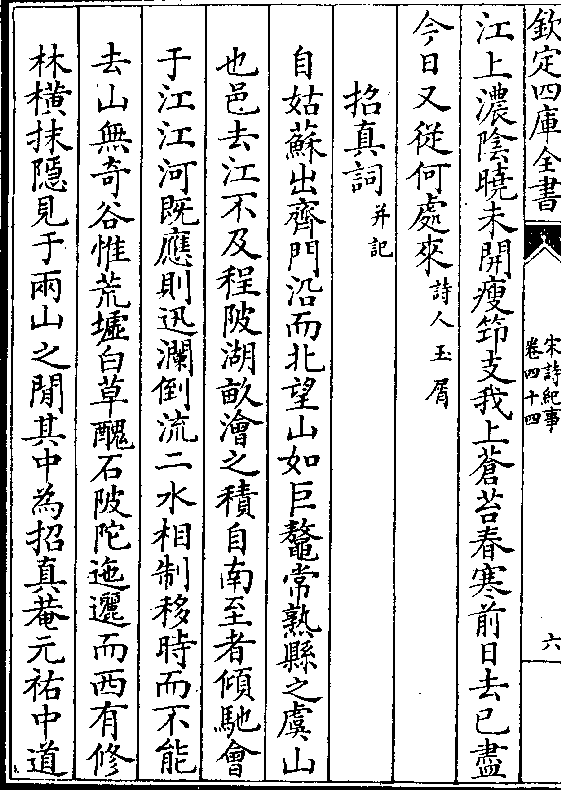 欽定四庫全書
宋詩紀事
卷四十四
六
江上濃陰曉未開瘦筇支我上蒼苔春寒前日去已盡
今日又從何處來詩人玉屑
招真詞并記
自姑蘇出齊門沿而北望山如巨鼇常熟縣之虞山
也邑去江不及程陂湖畝澮之積自南至者傾馳會
于江江河既應則迅瀾倒流二水相制移時而不能
去山無奇谷惟荒墟白草醜石陂陀迤邐而西有修
林橫抹隱見于兩山之間其中為招真菴元祐中道